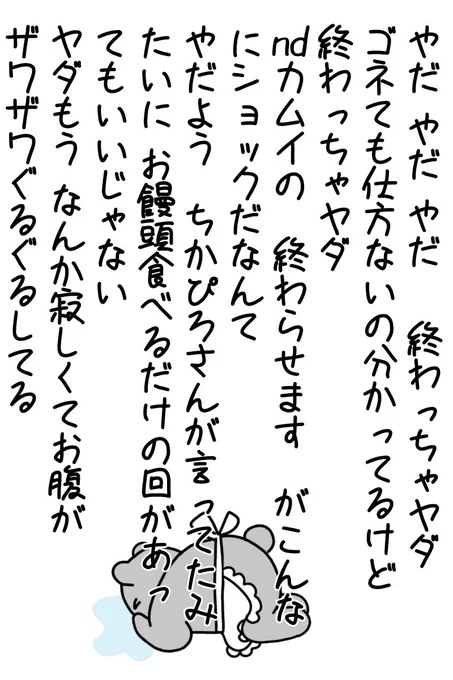 やだ やだ やだ 終わっちゃヤダ
ゴネても仕方ないの分かってるけど
終わっちゃヤダ
ndカムイの 終わらせます がこんな
にショックだなんて
やだよう ちかぴろさんが言ってたみ
たいに お饅頭食べるだけの回があっ
てもいいじゃない
ヤダもう なんか寂しくてお腹が
ザワザワぐるぐるしてる